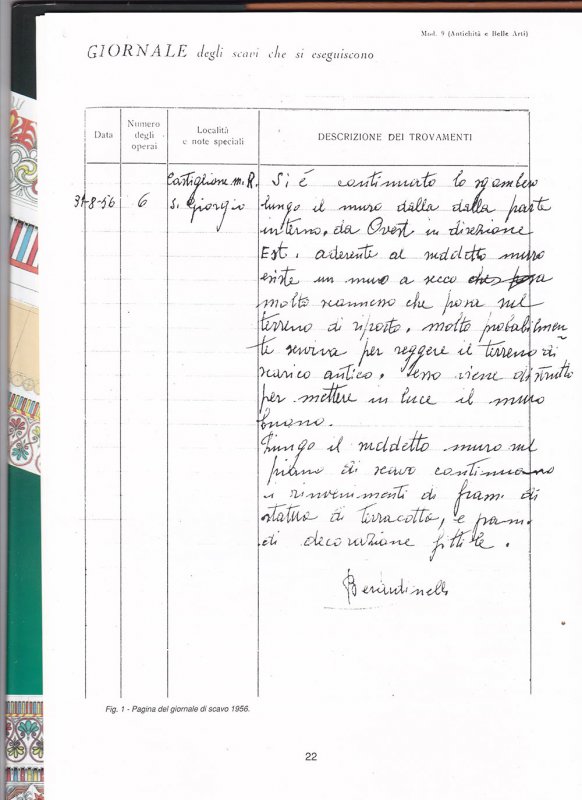 Mod. 9 (Antichità e Belle Arti)
GIORNALE degli scavi che si eseguiscono
Data
Numero
degli
operai
Località
e note speciali
DESCRIZIONE DEI TROVAMENTI
31-8-56
6
Castiglione m. R.
S. Giorgio
Si é continuato lo sgombero
lungo il muro dalla dalla parte
interno, da Ovest in direzione
Est. aderente al suddetto muro
esiste un muro a secco che posa
molto sconnesso che posa sul
terreno di riporto, molto probabilmen
te serviva per reggere il terreno di
scarico antico. Esso viene distrutto
per mettere in luce il muro
buono.
Lungo il suddetto muro sul
piano di scavo continuano
i rinvenimenti di fram. di
statua di terracotta, e fram.
di decorazione fittile.
Berardinelli
Fig. 1 - Pagina del giornale di scavo 1956.
22